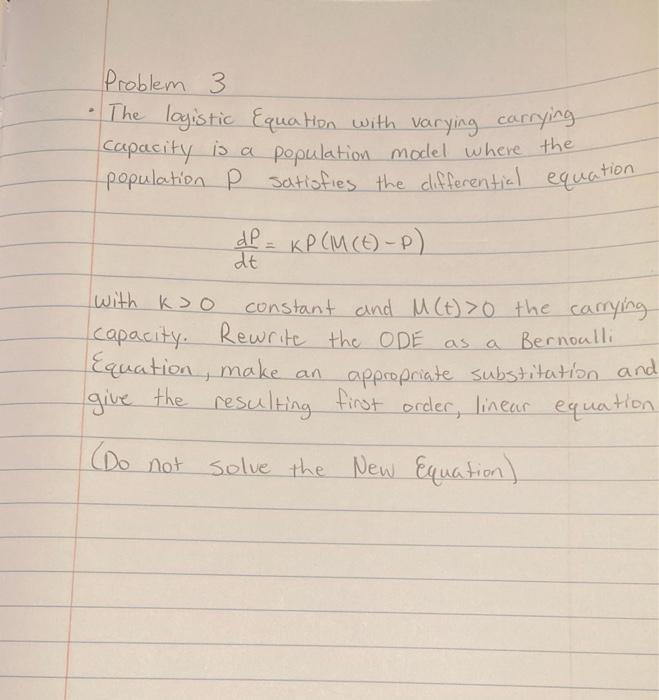 Problem 3
• The logistic Equation with varying carrying
capacity is a population model where the
population P satisfies the differential equation
dP/dt = KP(M(t)-P)
with K>0 constant and M(t)>0 the carrying
capacity. Rewrite the ODE as a Bernoulli
Equation, make an appropriate substitution and
give the resulting first order, linear equation
(Do not solve the New Equation)